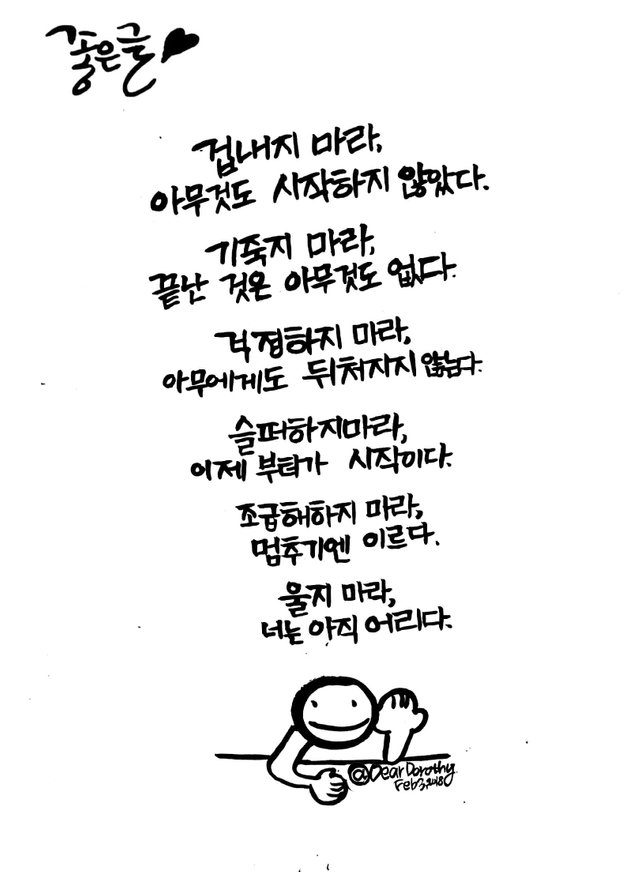 좋은글
겁내지 마라,
아무것도 시작하지 않았다.
기죽지 마라,
끝난 것은 아무것도 없다.
걱정하지 마라,
아무에게도 뒤처지지 않는다.
슬퍼하지마라,
이제 부터가 시작이다.
조급해하지 마라,
멈추기엔 이르다.
울지 마라,
너는 아직 어리다.
@Dear Dorothy
Feb 3, 2018